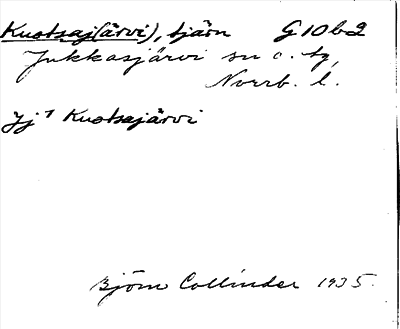 Kuotsaj(ärvi), tjärn G10b2
Jukkasjärvi sn o. tg
Norrb. l.
Jj⁷ Kuotsajärvi
Björn Collinder 1935.